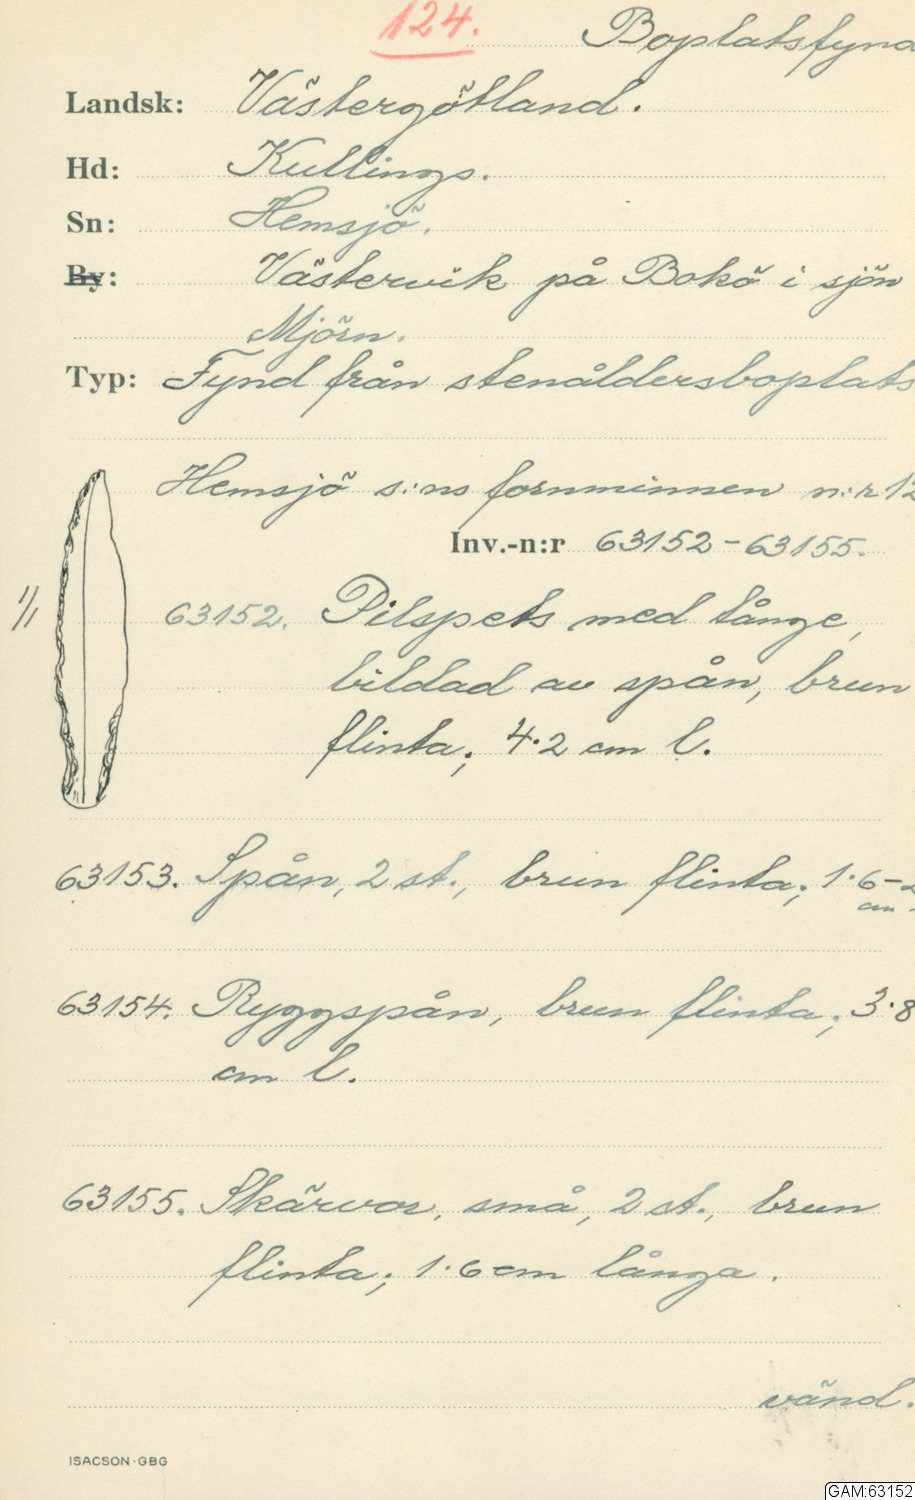 124.
Boplatsfynd
Landsk: Västergötland.
Hd: Kullings.
Sn: Hemsjö.
By: Västervik på Bokö i sjön
Mjörn.
Typ: Fynd från stenåldersboplats
Hemsjö s:ns fornminnen n:r 12
Inv.-n:r 63152-63155.
1/1
63152. Pilspets med tånge,
bildad av spån, brun
flinta; 4.2 cm l.
63153. Spån, 2 st., brun flinta; 1.6-
cm
63154. Ryggspån, brun flinta; 3.8
cm l.
63155. Skärvor, små, 2 st., brun
flinta; 1.6 cm långa.
vänd.
ISACSON·GBG
GAM:63152